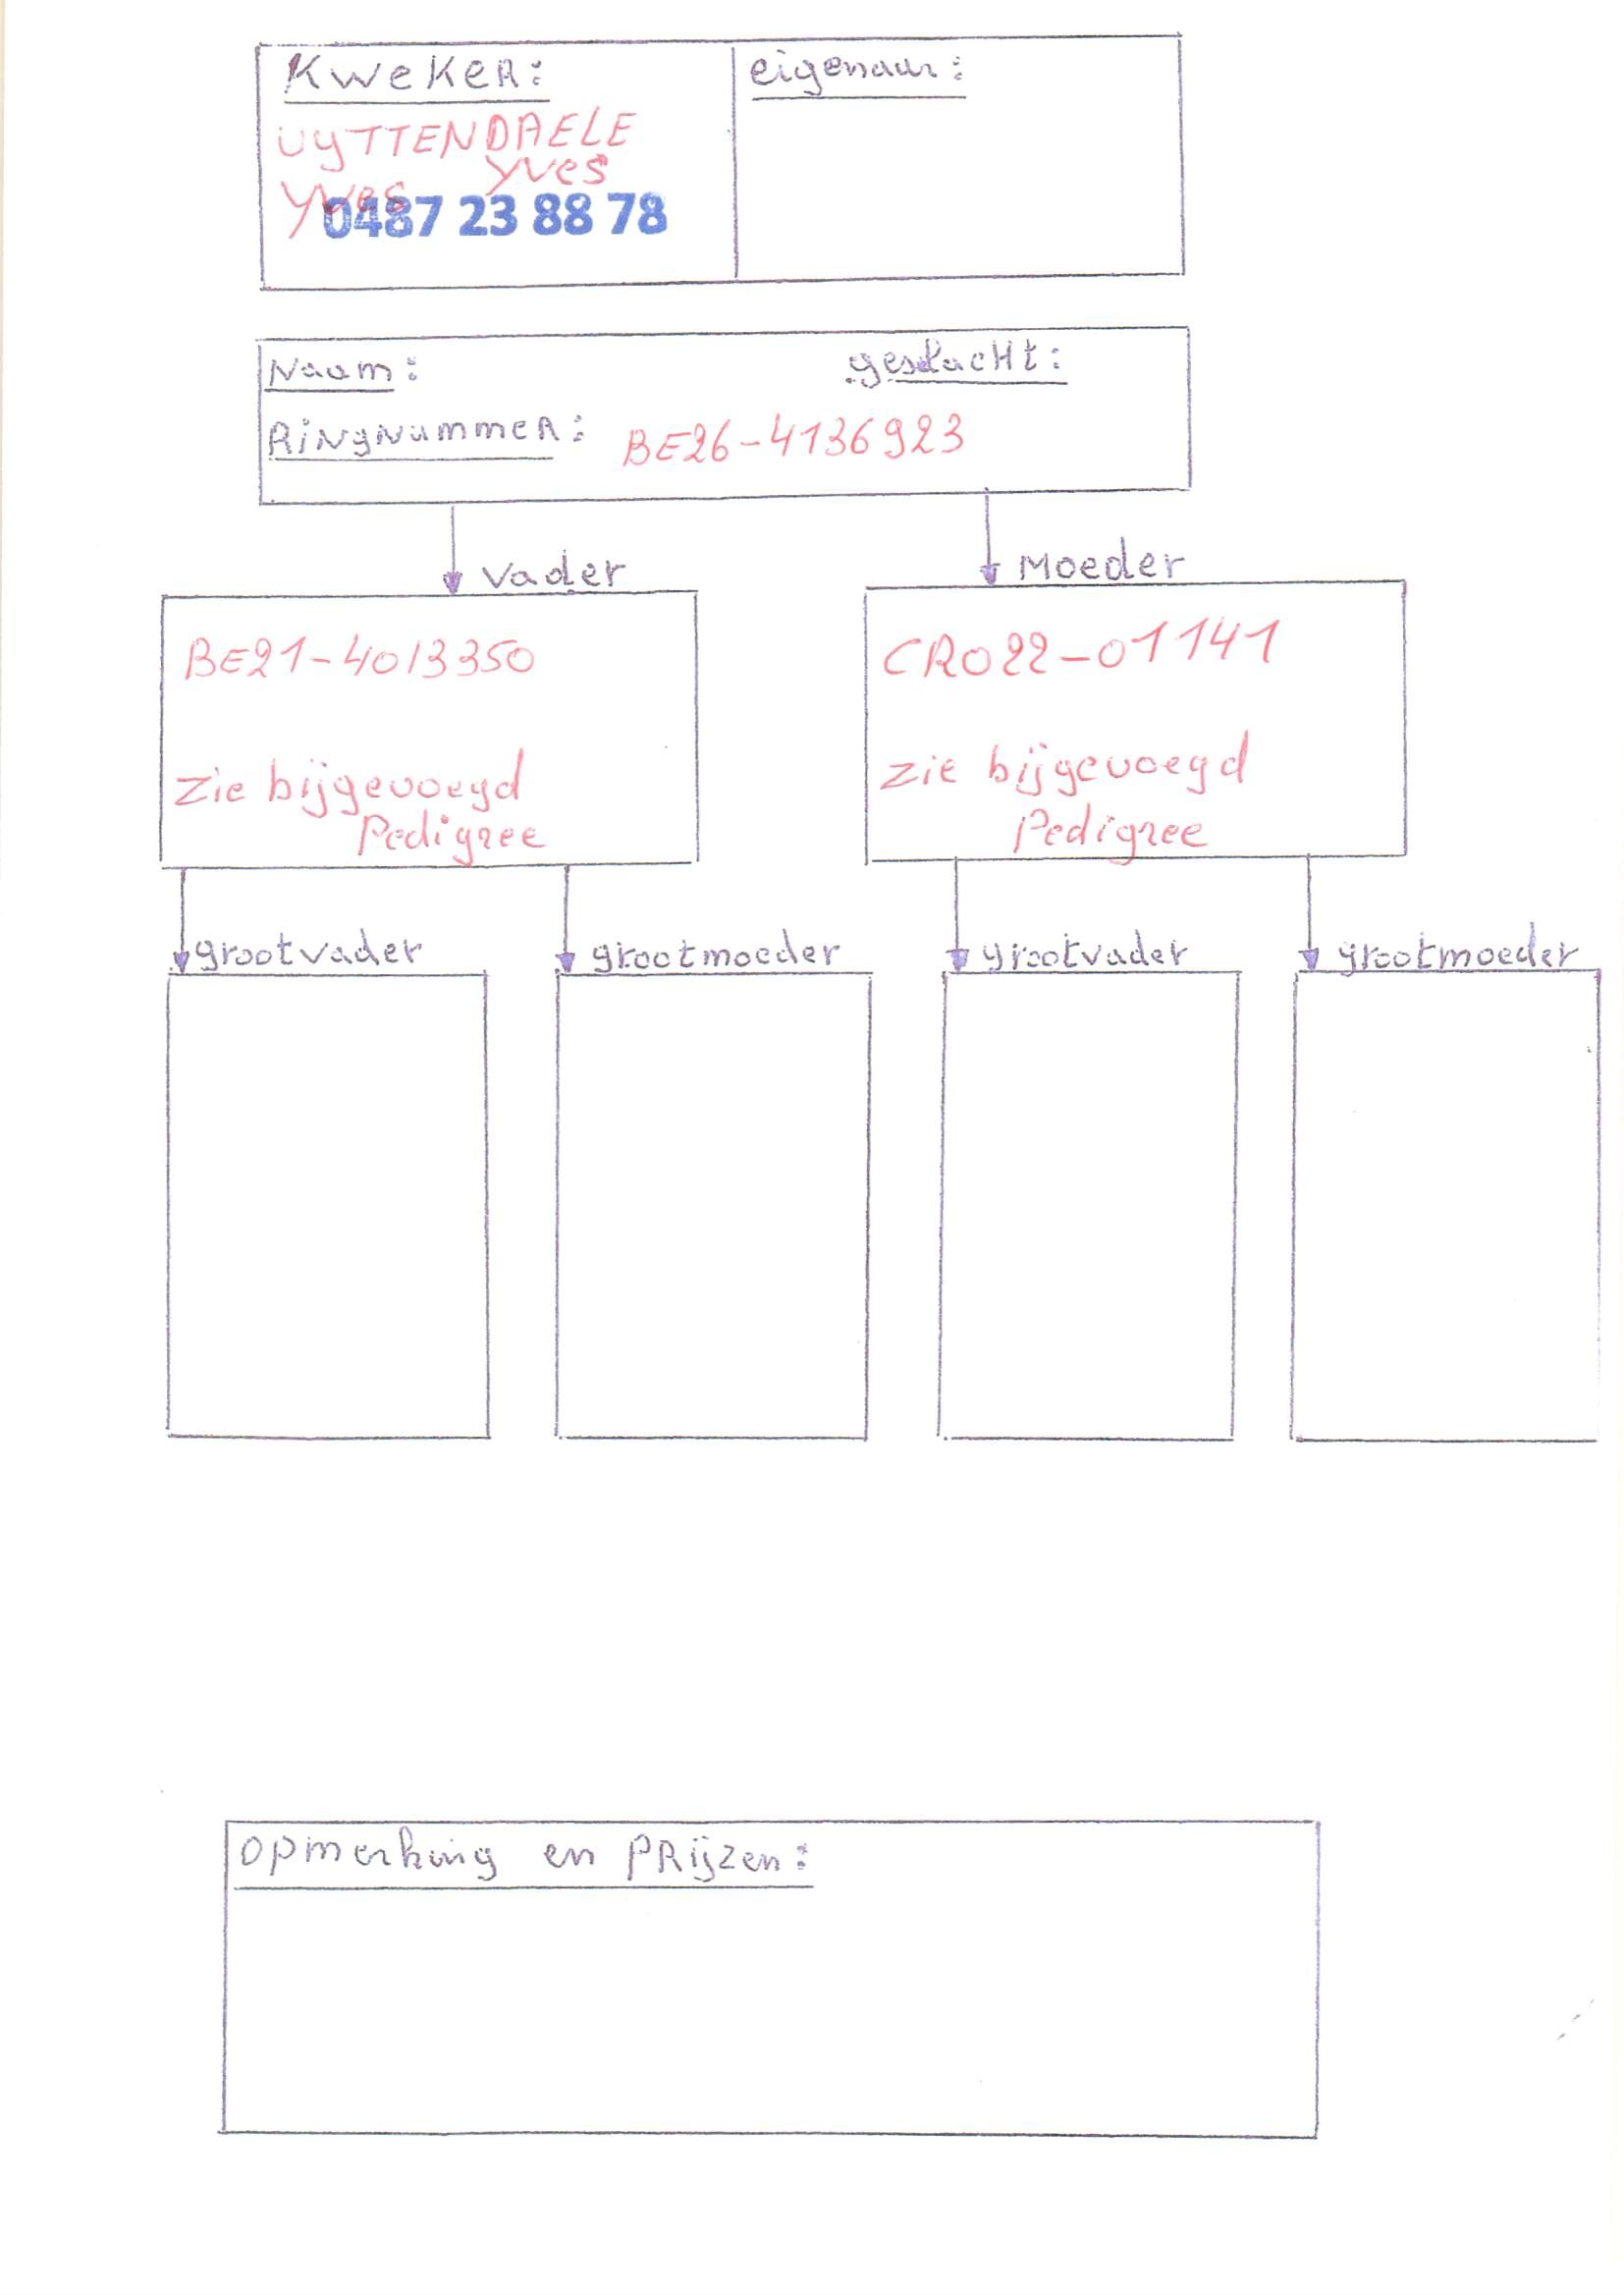 KWEKER:
eigenaar:
UYTTENDAELE
Yves
Yves
0487 23 88 78
Naam:
geslacht:
Ringnummer: BE26-4136923
Vader
Moeder
BE21-4013350
CRO22-01141
zie bijgevoegd
Pedigree
zie bijgevoegd
Pedigree
grootvader
grootmoeder
grootvader
grootmoeder
opmerking en PRijzen: